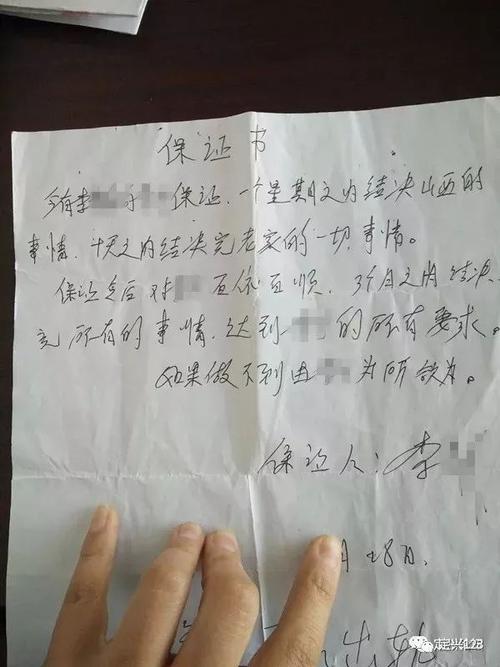 保证书
今有李 保证.一个星期之内结决山西的
事情.十天之内结决完老家的一切事情。
保证之后对 百依百顺.3个月之内结决
完所有的事情.达到 的所有要求。
如果做不到由 为所欲为。
保证人:李
月28日.
定兴123